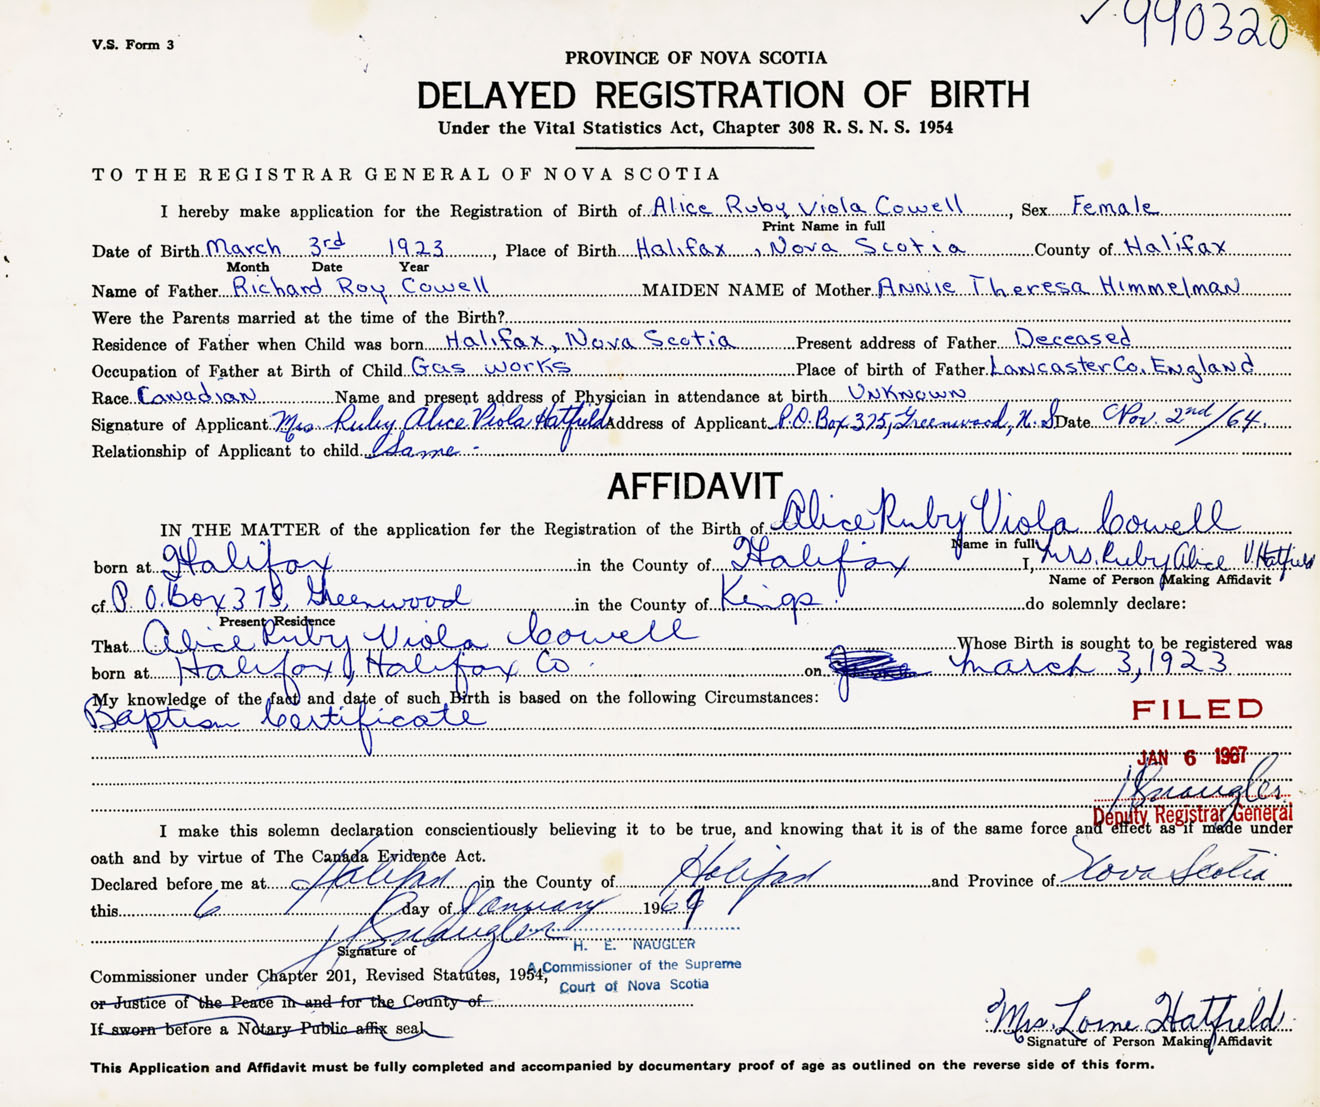 ✓ 990320
V.S. Form 3
PROVINCE OF NOVA SCOTIA
DELAYED REGISTRATION OF BIRTH
Under the Vital Statistics Act, Chapter 308 R. S. N. S. 1954
TO THE REGISTRAR GENERAL OF NOVA SCOTIA
I hereby make application for the Registration of Birth of Alice Ruby Viola Cowell, Sex Female
Print Name in full
Date of Birth March 3rd 1923, Place of Birth Halifax, Nova Scotia County of Halifax
Month Date Year
Name of Father Richard Roy Cowell MAIDEN NAME of Mother Annie Theresa Himmelman
Were the Parents married at the time of the Birth?
Residence of Father when Child was born Halifax, Nova Scotia Present address of Father Deceased
Occupation of Father at Birth of Child Gas works Place of birth of Father Lancaster Co. England
Race Canadian Name and present address of Physician in attendance at birth Unknown
Signature of Applicant Mrs Ruby Alice Viola Hatfield Address of Applicant P.O. Box 375, Greenwood, N. S Date Nov. 2nd/64.
Relationship of Applicant to child Same -
AFFIDAVIT
IN THE MATTER of the application for the Registration of the Birth of Alice Ruby Viola Cowell
Name in full
born at Halifax in the County of Halifax I, Mrs. Ruby Alice V. Hatfield
Name of Person Making Affidavit
of P. O. Box 375, Greenwood in the County of Kings do solemnly declare:
Present Residence
That Alice Ruby Viola Cowell Whose Birth is sought to be registered was
born at Halifax, Halifax Co. on March 3, 1923
My knowledge of the fact and date of such Birth is based on the following Circumstances:
Baptism Certificate
FILED
JAN 6 1967
HENaugler
Deputy Registrar General
I make this solemn declaration conscientiously believing it to be true, and knowing that it is of the same force and effect as if made under
oath and by virtue of The Canada Evidence Act.
Declared before me at Halifax in the County of Halifax and Province of Nova Scotia
this 6 day of January 1969
HENaugler
Signature of
H. E. NAUGLER
A Commissioner of the Supreme
Court of Nova Scotia
Commissioner under Chapter 201, Revised Statutes, 1954,
or Justice of the Peace in and for the County of
If sworn before a Notary Public affix seal
Mrs. Lorne Hatfield
Signature of Person Making Affidavit
This Application and Affidavit must be fully completed and accompanied by documentary proof of age as outlined on the reverse side of this form.